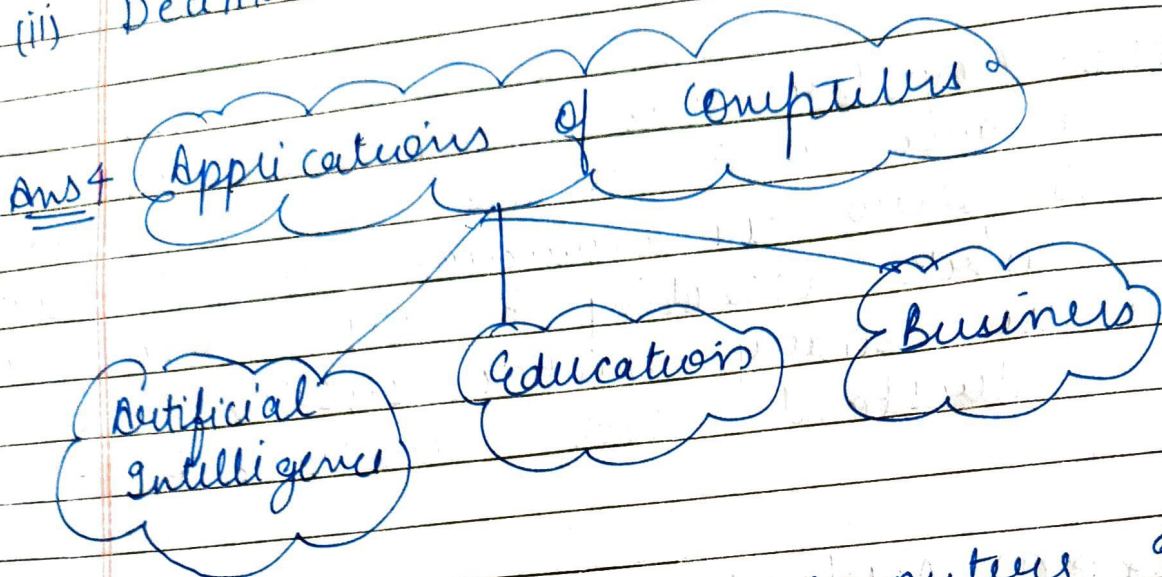 (iii)
Ans 4 Applications of Computers
Artificial
Intelligence
Education
Business